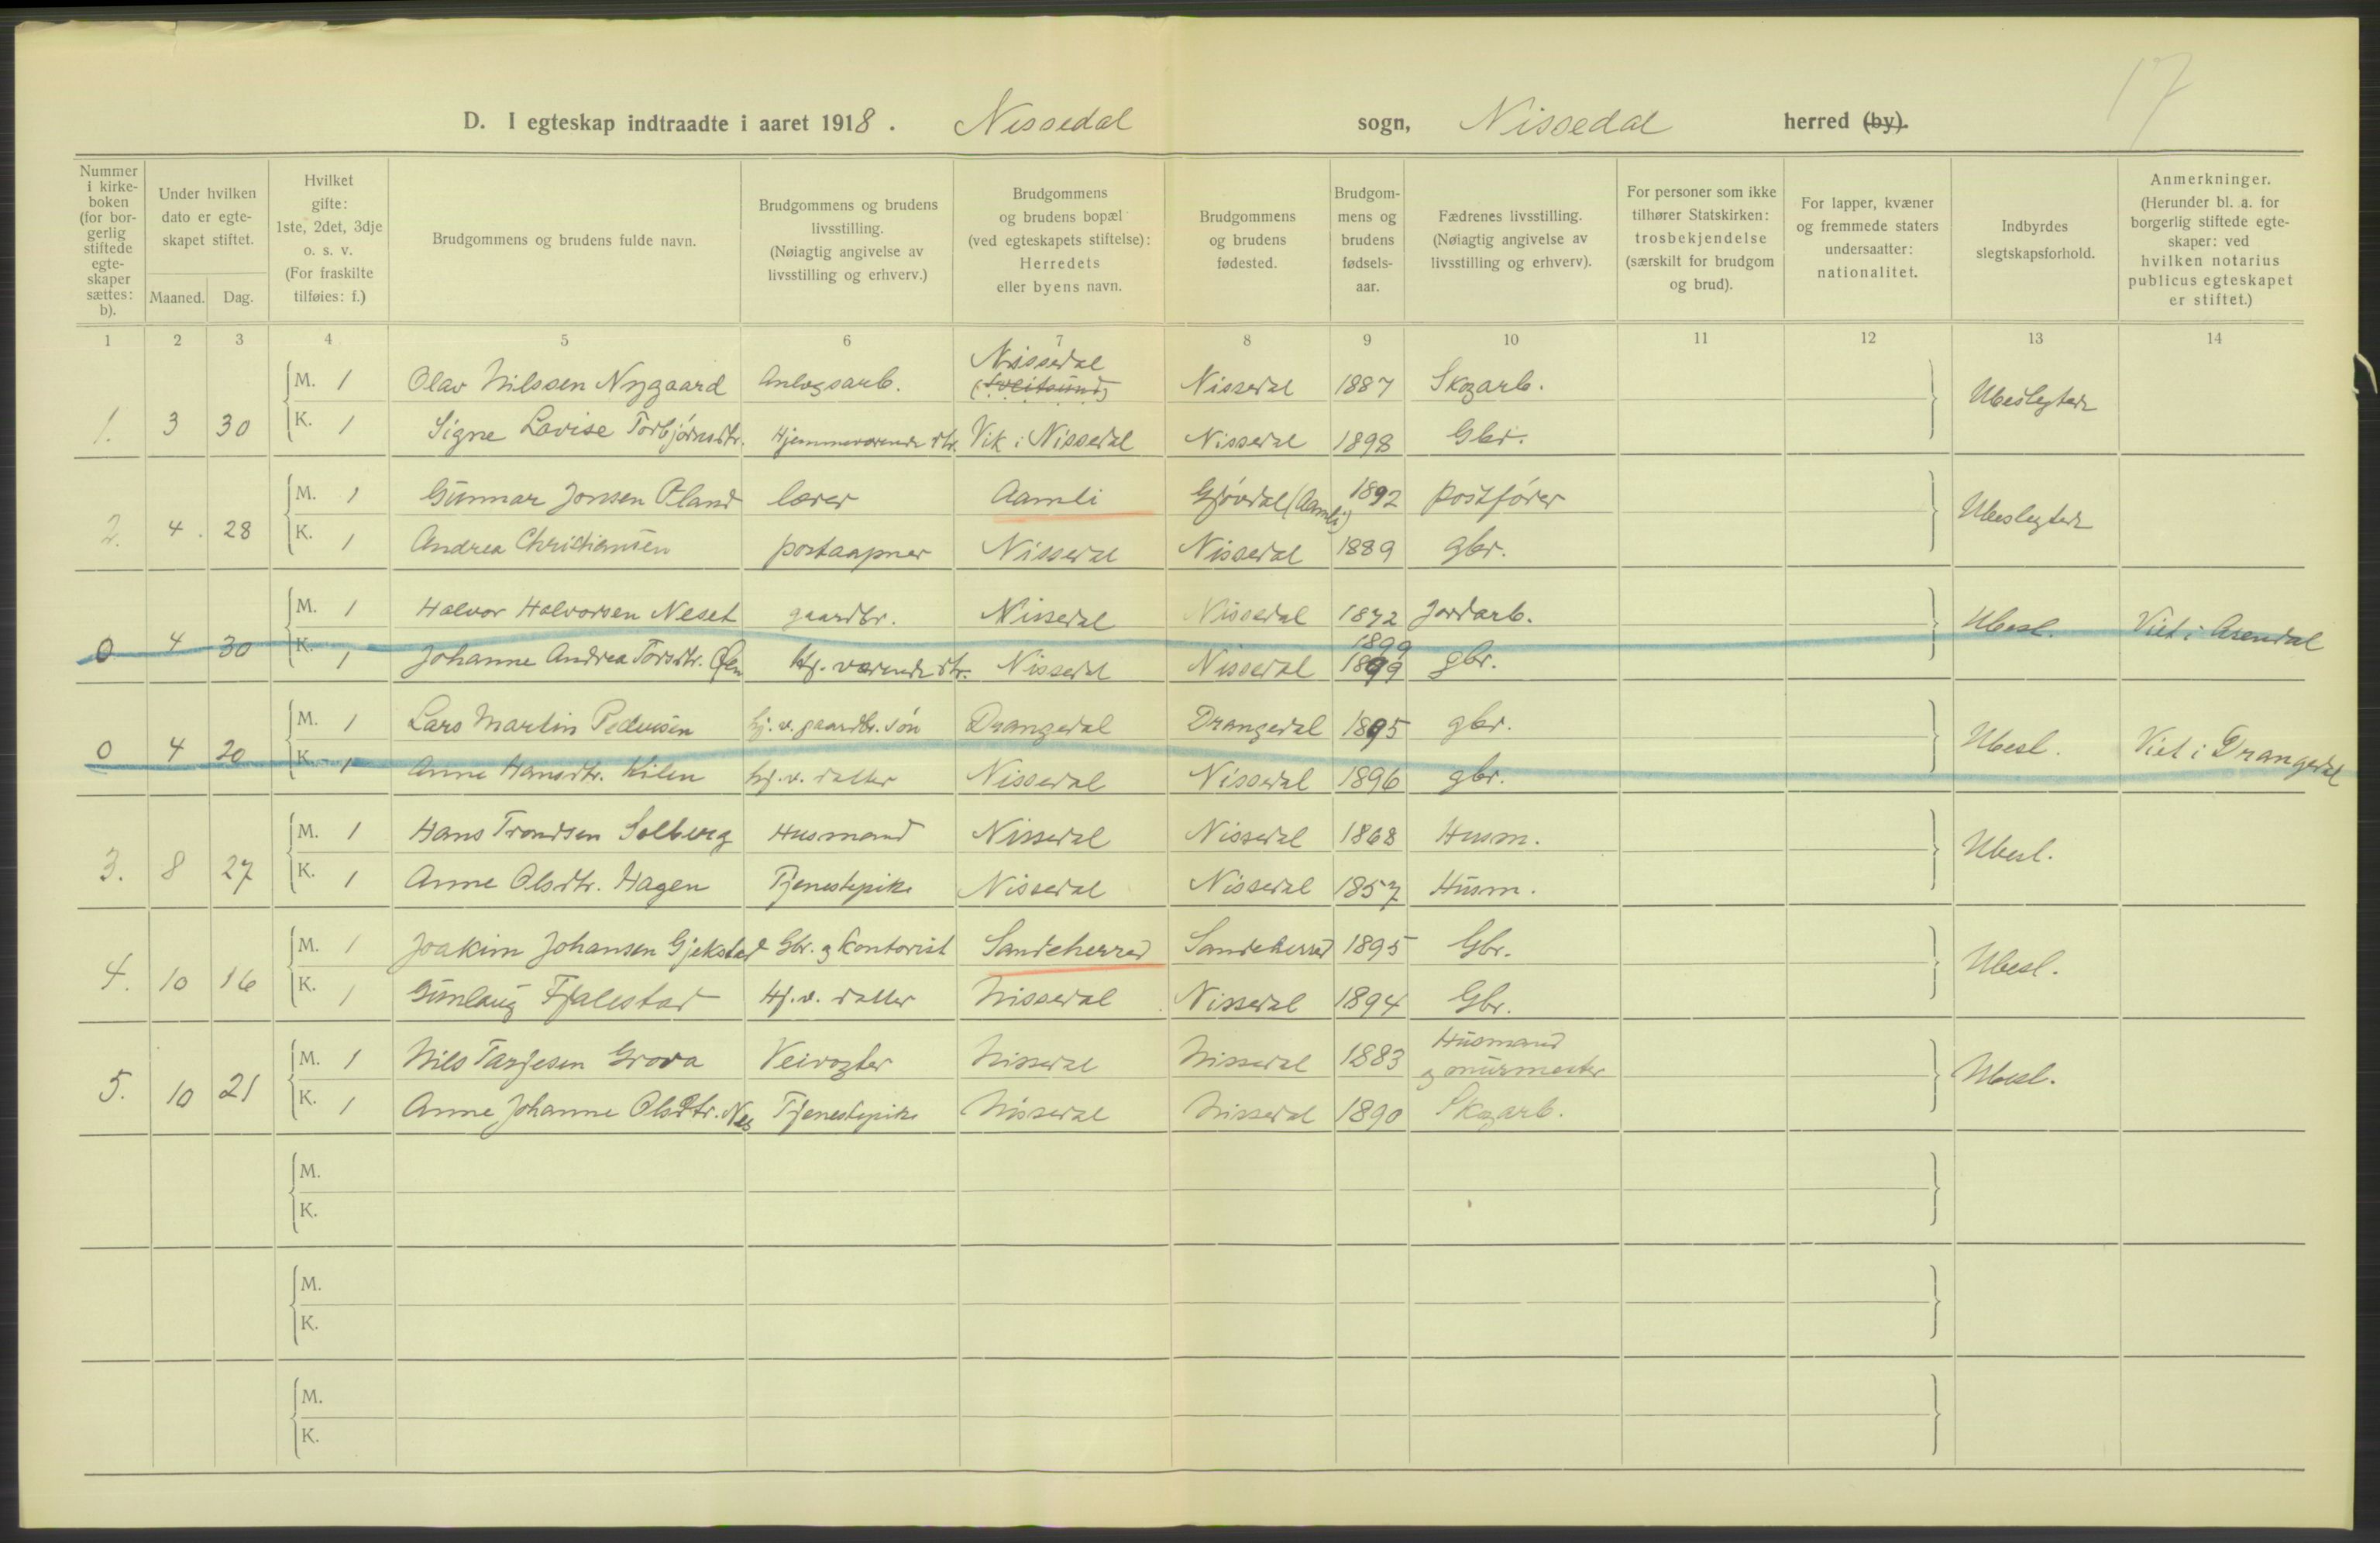 17
D. I egteskap indtraadte i aaret 1918. Nissedal sogn, Nissedal herred (by).
Nummer i kirke- boken (for bor- gerlig stiftede egte- skaper sættes: b).
Under hvilken dato er egte- skapet stiftet.
Maaned. Dag.
Hvilket gifte: 1ste, 2det, 3dje o. s. v. (For fraskilte tilføies: f.)
Brudgommens og brudens fulde navn.
Brudgommens og brudens livsstilling. (Nøiagtig angivelse av livsstilling og erhverv.)
Brudgommens og brudens bopæl (ved egteskapets stiftelse): Herredets eller byens navn.
Brudgommens og brudens fødested.
Brudgom- mens og brudens fødsels- aar.
Fædrenes livsstilling. (Nøiagtig angivelse av livsstilling og erhverv).
For personer som ikke tilhører Statskirken: trosbekjendelse (særskilt for brudgom og brud).
For lapper, kvæner og fremmede staters undersaatter: nationalitet.
Indbyrdes slegtskapsforhold.
Anmerkninger. (Herunder bl. a. for borgerlig stiftede egte- skaper: ved hvilken notarius publicus egteskapet er stiftet.)
1 2 3 4 5 6 7 8 9 10 11 12 13 14
1. 3 30 Ubeslegtede
M. 1 Olav Nilssen Nygaard Anlegsarb. Nissedal (Treitsund) Nissedal 1887 Skogarb.
K. 1 Signe Lovise Torbjørnsdtr. Hjemmeværende dtr. Vik i Nissedal Nissedal 1898 Gbr.
2. 4. 28 Ubeslegtede
M. 1 Gunnar Jonsen Øland lærer Aamli Gjøvdal (Aamli) 1892 postfører
K. 1 Andrea Christiansen postaapner Nissedal Nissedal 1889 gbr.
0 4 30 Ubesl. Viet i Arendal
M. 1 Halvor Halvorsen Neset gaardbr. Nissedal Nissedal 1872 Jordarb.
K. 1 Johanne Andrea Torsdtr. hj. værende dtr. Nissedal Nissedal 1899 1899 gbr.
0 4 20 Ubesl. Viet i Drangedal
M. 1 Lars Martin Pedersen hj. v. gaardbr. søn Drangedal Drangedal 1895 gbr.
K. 1 Anne Hansdtr. Kilen hj. v. datter Nissedal Nissedal 1896 gbr.
3. 8 27 Ubesl.
M. 1 Hans Trondsen Solberg Husmand Nissedal Nissedal 1868 Husm.
K. 1 Anne Olsdtr. Hagen Tjenestepike Nissedal Nissedal 1857 Husm.
4. 10 16 Ubesl.
M. 1 Joakim Johansen Gjekstad Gbr. og kontorist Sandeherred Sandeherred 1895 Gbr.
K. 1 Gunlaug Fjalestad Hj. v. datter Nissedal Nissedal 1894 Gbr.
5. 10 21 Ubesl.
M. 1 Nils Tarjesen Grova Veivogter Nissedal Nissedal 1883 Husmand og murmester
K. 1 Anne Johanne Olsdtr. Nes Tjenestepike Nissedal Nissedal 1890 Skogarb.
M.
K.
M.
K.
M.
K.